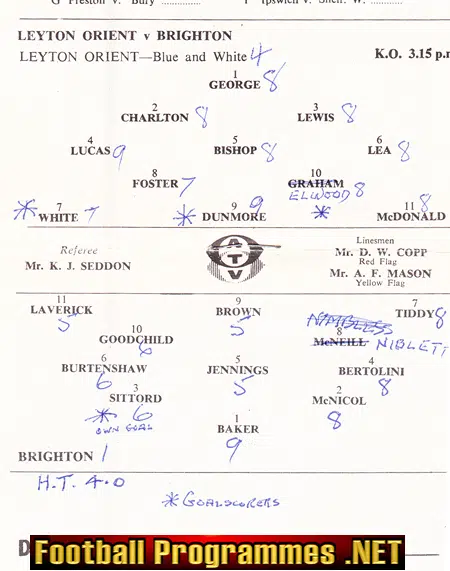 G Preston v. Bury .............. Ipswich v. Sheff. W. ..............
LEYTON ORIENT v BRIGHTON
LEYTON ORIENT—Blue and White 4 K.O. 3.15 p.
1
GEORGE 8
2 3
CHARLTON 8 LEWIS 8
4 5 6
LUCAS 9 BISHOP 8 LEA 8
8 10
FOSTER 7 GRAHAM
ELWOOD 8
7 9 11
* WHITE 7 * DUNMORE 9 * McDONALD 8
Referee Linesmen
Mr. K. J. SEDDON ATV Mr. D. W. COPP
Red Flag
Mr. A. F. MASON
Yellow Flag
11 9 7
LAVERICK 5 BROWN 5 TIDDY 8
10 NIMBLESS 8
GOODCHILD 6 McNEILL NIBLETT
6 5 4
BURTENSHAW 6 JENNINGS 5 BERTOLINI 8
3 2
SITTORD McNICOL 8
* 6
OWN GOAL
1
BAKER 9
BRIGHTON 1
H.T. 4.0
* GOALSCORERS
D
Football Programmes .NET